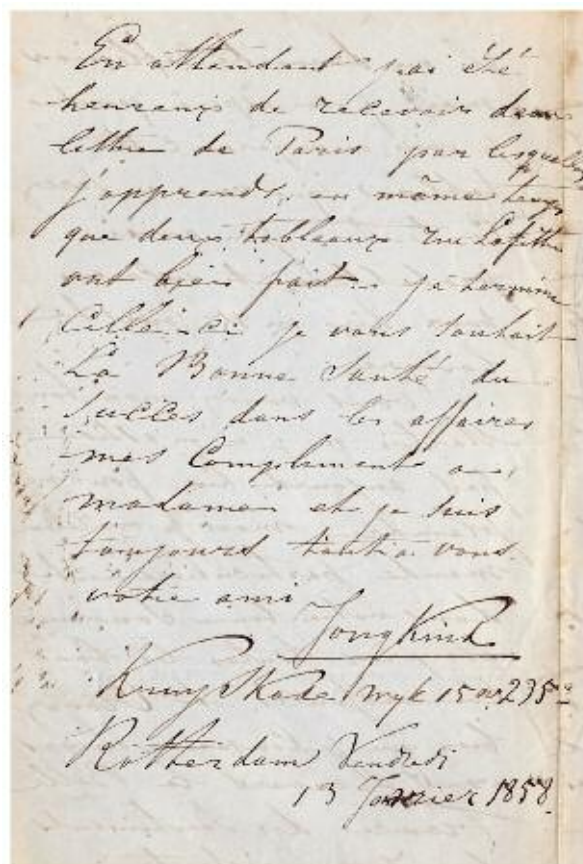 En attendant j'ai été
heureux de recevoir deux
lettre de Paris par lesquelles
j'apprends, en même temps
que deux tableaux rue Lafitte
ont bien fait. je termine
Celle-ci je vous souhait
La Bonne Santé du
Succes dans les affaires
mes Compliment a
madame et je suis
toujours tout a vous
votre ami
Jongkind
Kruyskade wyk 15 no 235
Rotterdam Vendredi
13 Janvier 1858